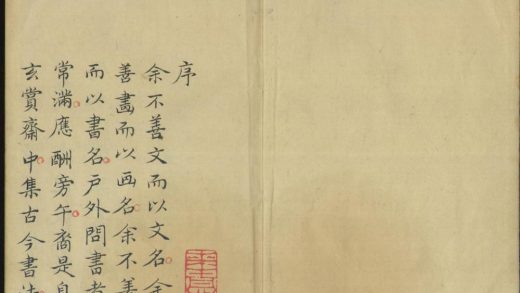 序
余不善文而以文名余
善畫而以画名余不善
而以書名戶外問書者
常滿應酬旁午裔是自
玄賞齋中集古今書法